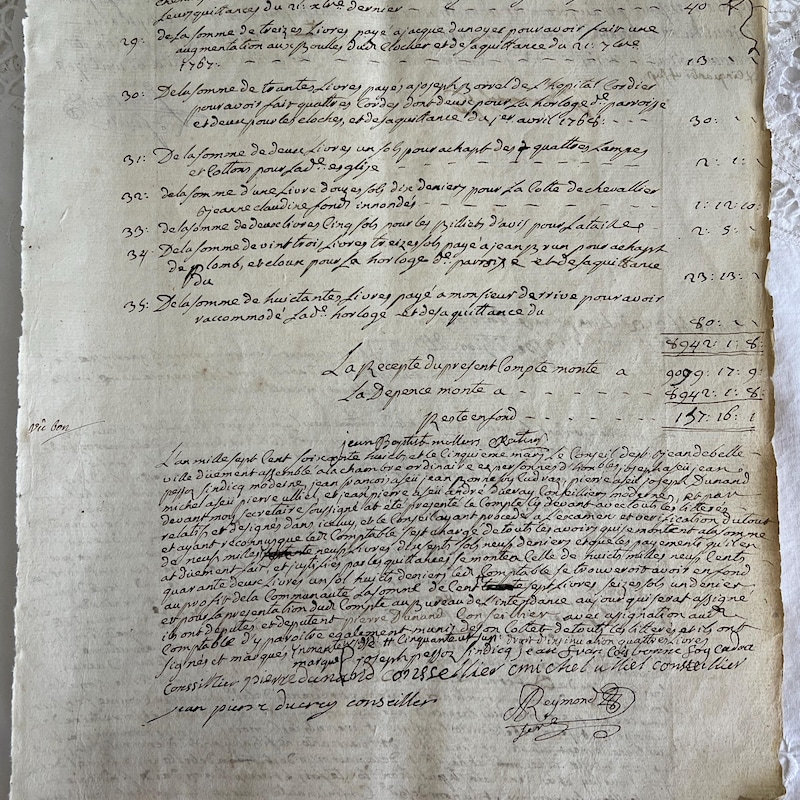 Leurs quittances du 21: xbre dernier - - - - 40
29: de la somme de treizes Livres payé a jacque dunoyer pour avoir fait une
augmentation aux Boulles dud. Clocher et de sa quittance du 21: 7bre
1767: - - - - - - - - 13:
30: De la somme de trantes Livres payés a joseph Borrel de L'hopital Cordier
pour avoir fait quattres Cordes dont deux pour la horloge de. parroise
et deux pour les cloches, et de sa quittance du 1er avril 1768: - - - 30:
31: De la somme de deux Livres un sol pour achapt des quattres Lampes
et Cottons pour Lade. esglise - - - - - 2: 1:
32: de la somme d'une Livre douzes sols dix deniers pour La Cotte de chevallier
jeanne claudine fonds innondés - - - - - 1: 12: 10:
33: de la somme de deux livres Cinq sols pour les Billiets d'avis pour La taille - 2: 5:
34: De la somme de vint trois Livres treizes sols payé a jean Brun pour achapt
de plomb, et cloux pour La horloge de. parroise et de sa quittance
du 23: 13:
35: De la somme de huictantes Livres payé a monsieur derrive pour avoir
raccommodé Lade. horloge et de sa quittance du
80:
8942: 1: 8:
La Recepte du present Compte monte a 9099: 17: 9:
La Depence monte a - - - - - 8942: 1: 8:
Reste en fond - - - - 157: 16: 1
jean Baptiste
L'an mille sept Cent soixante huict et le Cinquieme mars, Le Conseil de st. jean de belle
ville duement assemblé a la chambre ordinaire es personnes d'honbles. joseph a feu jean
pessoz sindicq moderne, jean francois a feu jean bonne soy Cudraz, pierre a feu joseph Dunand
michel a feu pierre ulliel, et jean pierre a feu andré ducrey Conseilliers modernes, et par
devant moy secretaire soussigné at été presenté le Compte Cy devant avec touts les tittres
relatifs et designés dans iceluy, et le Conseil ayant procedé a L'examen et verification du tout
et ayant reconnu que led. Comptable s'est chargé de touts les avoirs qui se montent a la somme
de neuf milles neuf Livres dix sept sols neuf deniers et que les payements qu'il en
at duement fait, et justifiés par les quittances se monte a Celle de huict milles neuf Cents
quarante deux Livres un sol huict deniers led. Comptable se trouveroit avoir en fond
au profit de la Communauté La somme de Cent sept Livres seizes sols un denier
et pour la presentation dud. Compte au Bureau de L'intendance au jour qui serat assigné
ils ont deputés et deputent pierre Dunand Conseillier avec assignation aud.
Comptable d'y paroitre egalement munit de son Collet de touts les tittres et ils ont
signés et marqués
marque joseph pessoz sindicq jean fran cois bonne soy Cudra
Conssillier pierre dunand Conssellier michel ulliel Conssellier
jean pierre ducrey conseiller
Reymond
secre.